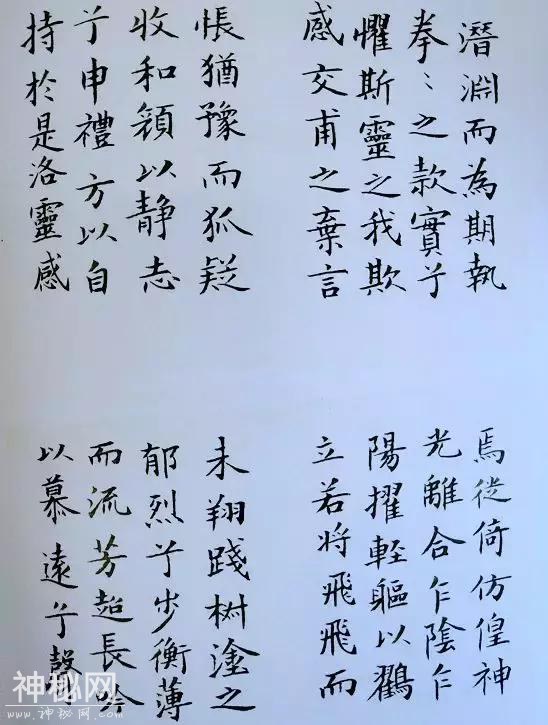 潛淵而為期執
拳〻之款實兮
懼斯靈之我欺
感交甫之棄言
悵猶豫而狐疑
收和顏以静志
兮申禮方以自
持於是洛靈感
焉徙倚仿偟神
光離合乍陰乍
陽擢輕軀以鸛
立若將飛飛而
未翔踐樹塗之
郁烈兮步衡薄
而流芳超長吟
以慕遠兮聲
神秘网
www.神秘网.com